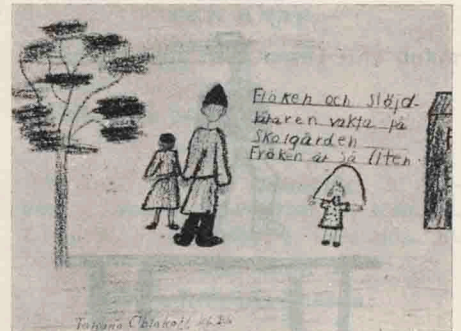 Fröken och slöjd-
läraren vakta på
Skolgården
Fröken är så liten.
Tatiana